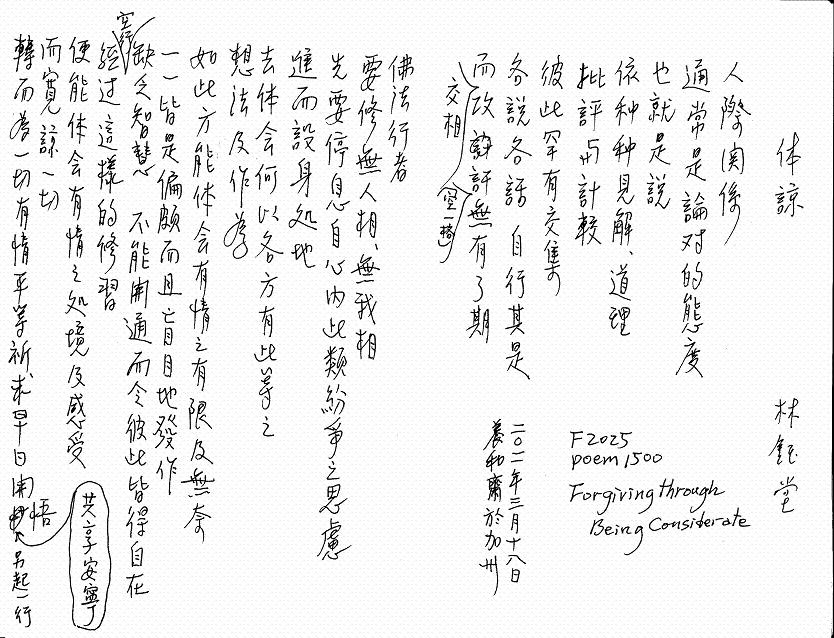 体諒
林鈺堂
人際関係
通常是論对的態度
也就是說
依种种見解、道理
批評与計較
彼此罕有交集
各說各話 自行其是
而攻訐無有了期
交相
空一格
佛法行者
要修無人相、無我相
先要停息自心內此類紛爭之思慮
進而設身处地
去体会何以各方有此等之
想法及作為
如此方能体会有情之有限及無奈
一一皆是偏頗而且盲目地發作
缺乏智慧 不能開通而令彼此皆得自在
空一行
經过這樣的修習
便能体会有情之处境及感受
而寬諒一切
轉而為一切有情平等祈求早日開悟
共享安寧
另起一行
二〇一一年三月十八日
養和齋於加州
F2025
poem 1500
Forgiving through
Being Considerate